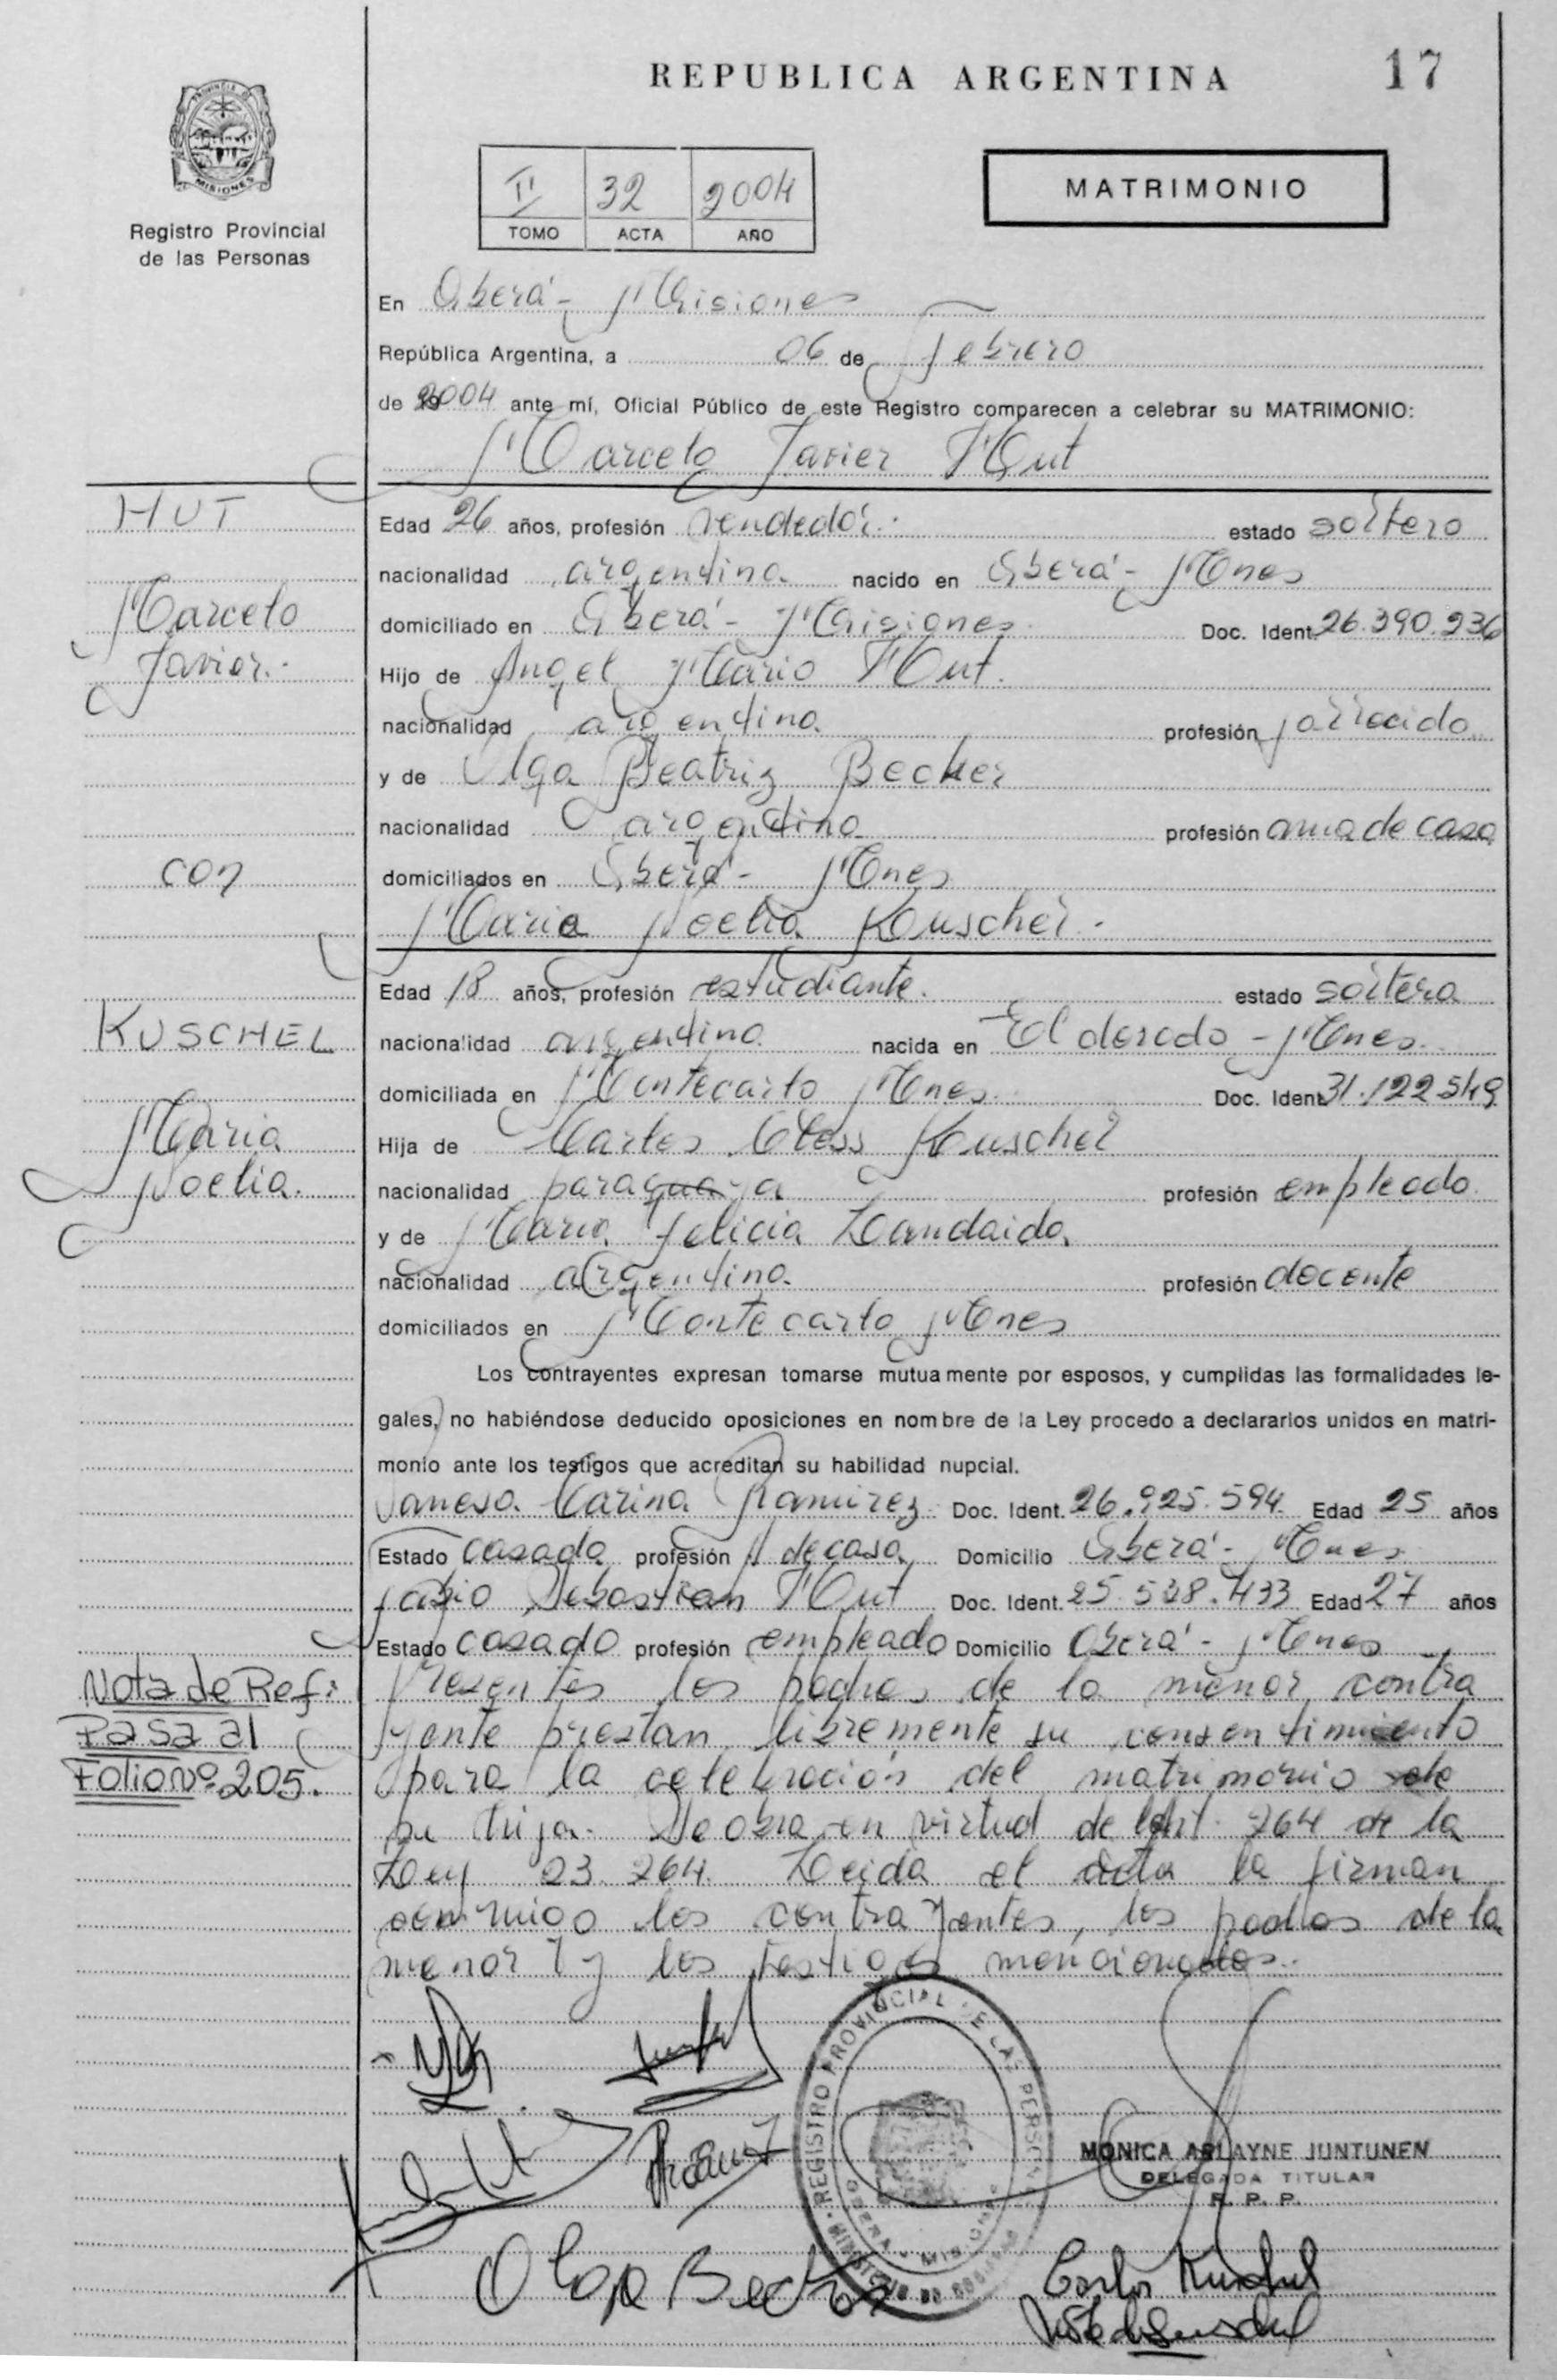 REPUBLICA ARGENTINA
17
PROVINCIA DE
MISIONES
Registro Provincial
de las Personas
II 32 2004
TOMO ACTA AÑO
MATRIMONIO
En Oberá - Misiones
República Argentina, a 06 de Febrero
de 2004 ante mí, Oficial Público de este Registro comparecen a celebrar su MATRIMONIO:
Marcelo Javier Hut
HUT
Marcelo
Javier.-
con
KUSCHEL
Maria
Noelia.
Edad 26 años, profesión vendedor.- estado soltero
nacionalidad argentina nacido en Oberá - Mnes
domiciliado en Oberá - Misiones Doc. Ident. 26.390.236
Hijo de Angel Mario Hut.
nacionalidad argentina profesión
y de Olga Beatriz Becker
nacionalidad argentina profesión ama de casa
domiciliados en Oberá - Mnes
Maria Noelia Kuschel.-
Edad 18 años, profesión estudiante. estado soltera
nacionalidad argentina nacida en Eldorado - Mnes.
domiciliada en Montecarlo Mnes. Doc. Ident. 31.122.549
Hija de Carlos Kuschel
nacionalidad paraguaya profesión empleado
y de Maria Felicia Landaida
nacionalidad argentina. profesión docente
domiciliados en Montecarlo Mnes
Los contrayentes expresan tomarse mutuamente por esposos, y cumplidas las formalidades le-
gales, no habiéndose deducido oposiciones en nombre de la Ley procedo a declararlos unidos en matri-
monio ante los testigos que acreditan su habilidad nupcial.
Vanesa Carina Ramirez Doc. Ident. 26.925.594 Edad 25 años
Estado casada profesión A de casa Domicilio Oberá - Mnes
Fabio Sebastian Hut Doc. Ident. 25.538.433 Edad 27 años
Estado casado profesión empleado Domicilio Oberá - Mnes
Nota de Ref:
Pasa al
Folio Nº 205.
Presentes los padres de la menor contra
yente prestan libremente su consentimiento
para la celebración del matrimonio de
su hija. Se obra en virtud del Art. 264 de la
Ley 23.264. Leida el acta la firman
conmigo los contrayentes, los padres de la
menor y los testigos mencionados.
REGISTRO PROVINCIAL DE LAS PERSONAS
OBERA - MISIONES
MINISTERIO DE GOBIERNO
MONICA ARLAYNE JUNTUNEN
DELEGADA TITULAR
R. P. P.
Olga Becker
Carlos Kuschel